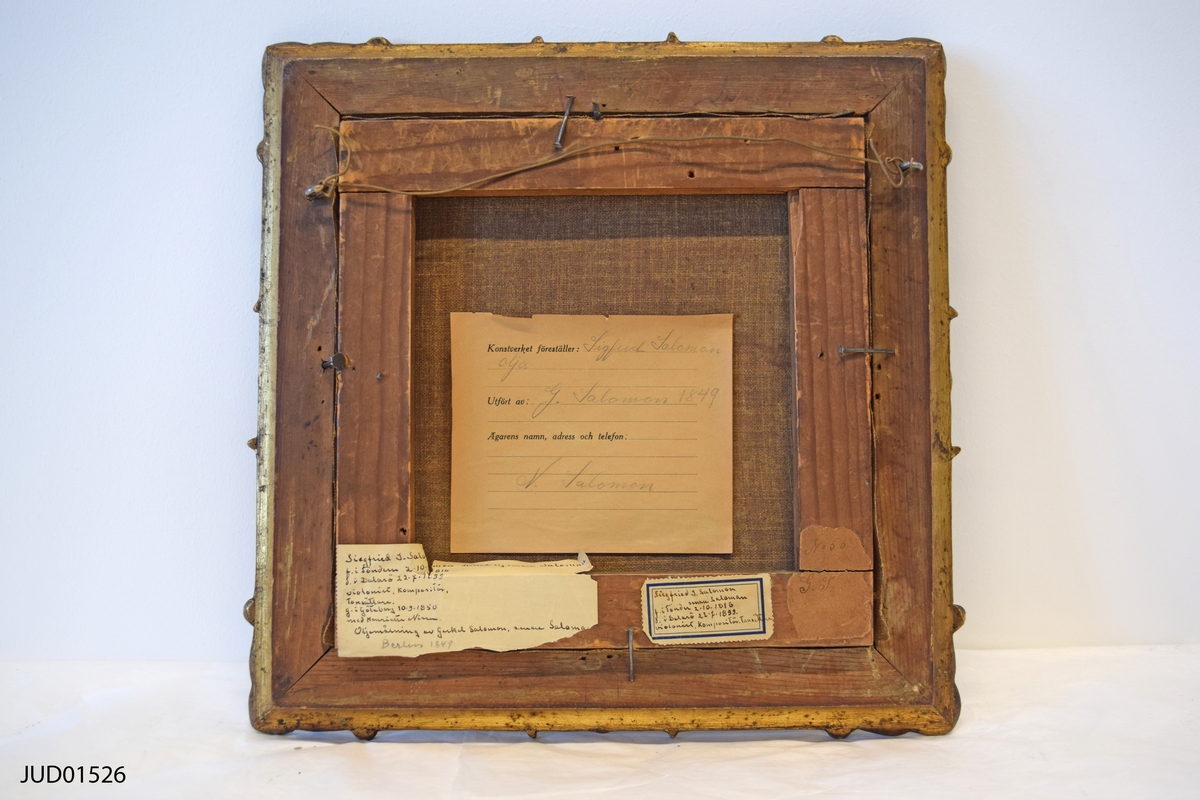 Konstverket föreställer: Sigfrid Saloman
Olja
Utfört av: G. Salomon 1849
Ägarens namn, adress och telefon:
N. Salomon
Siegfried S. Salo
f. i Tondern 2.10.
f. i Dalarö 22-7-1899
violinist, kompositör,
Tonsättare.
g. i Göteborg 10.9.1850
med Henriette Nissen.
Oljemålning av Geskel Salomon, Saloman
Berlin 1849
Siegfried S. Salomon
Saloman
f. i Tondern 2.10.1816
i Dalarö 22-7-1899.
violonist, kompositör,
JUD01526